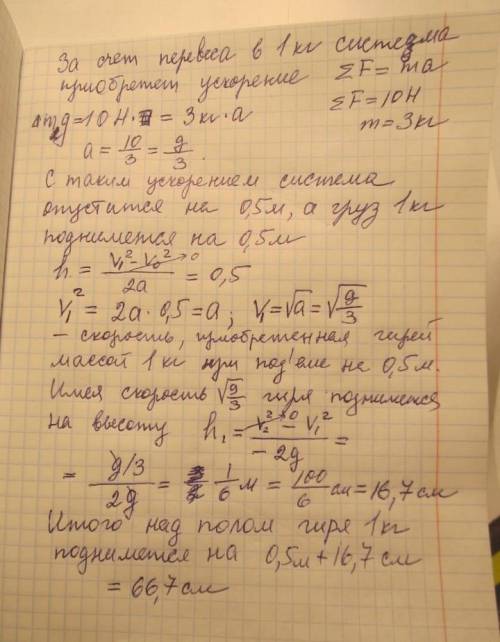 За счет перевеса в 1 кг система
приобретет ускорение ΣF = ma
Δmg = 10 Н = 3 кг · a ΣF = 10 Н
a = 10/3 = g/3. m = 3 кг
С таким ускорением система
опустится на 0,5 м, а груз 1 кг
поднимется на 0,5 м
h = (V₁² - V₀²)/2a = 0,5
V₁² = 2a · 0,5 = a; V₁ = √a = √(g/3)
– скорость, приобретенная гирей
массой 1 кг при под'еме на 0,5 м.
Имея скорость √(g/3) гиря поднимется
на высоту h₁ = (V₂² - V₁²)/(-2g) =
= (g/3)/2g = 1/6 м = 100/6 см = 16,7 см
Итого над полом гиря 1 кг
поднимется на 0,5 м + 16,7 см
= 66,7 см